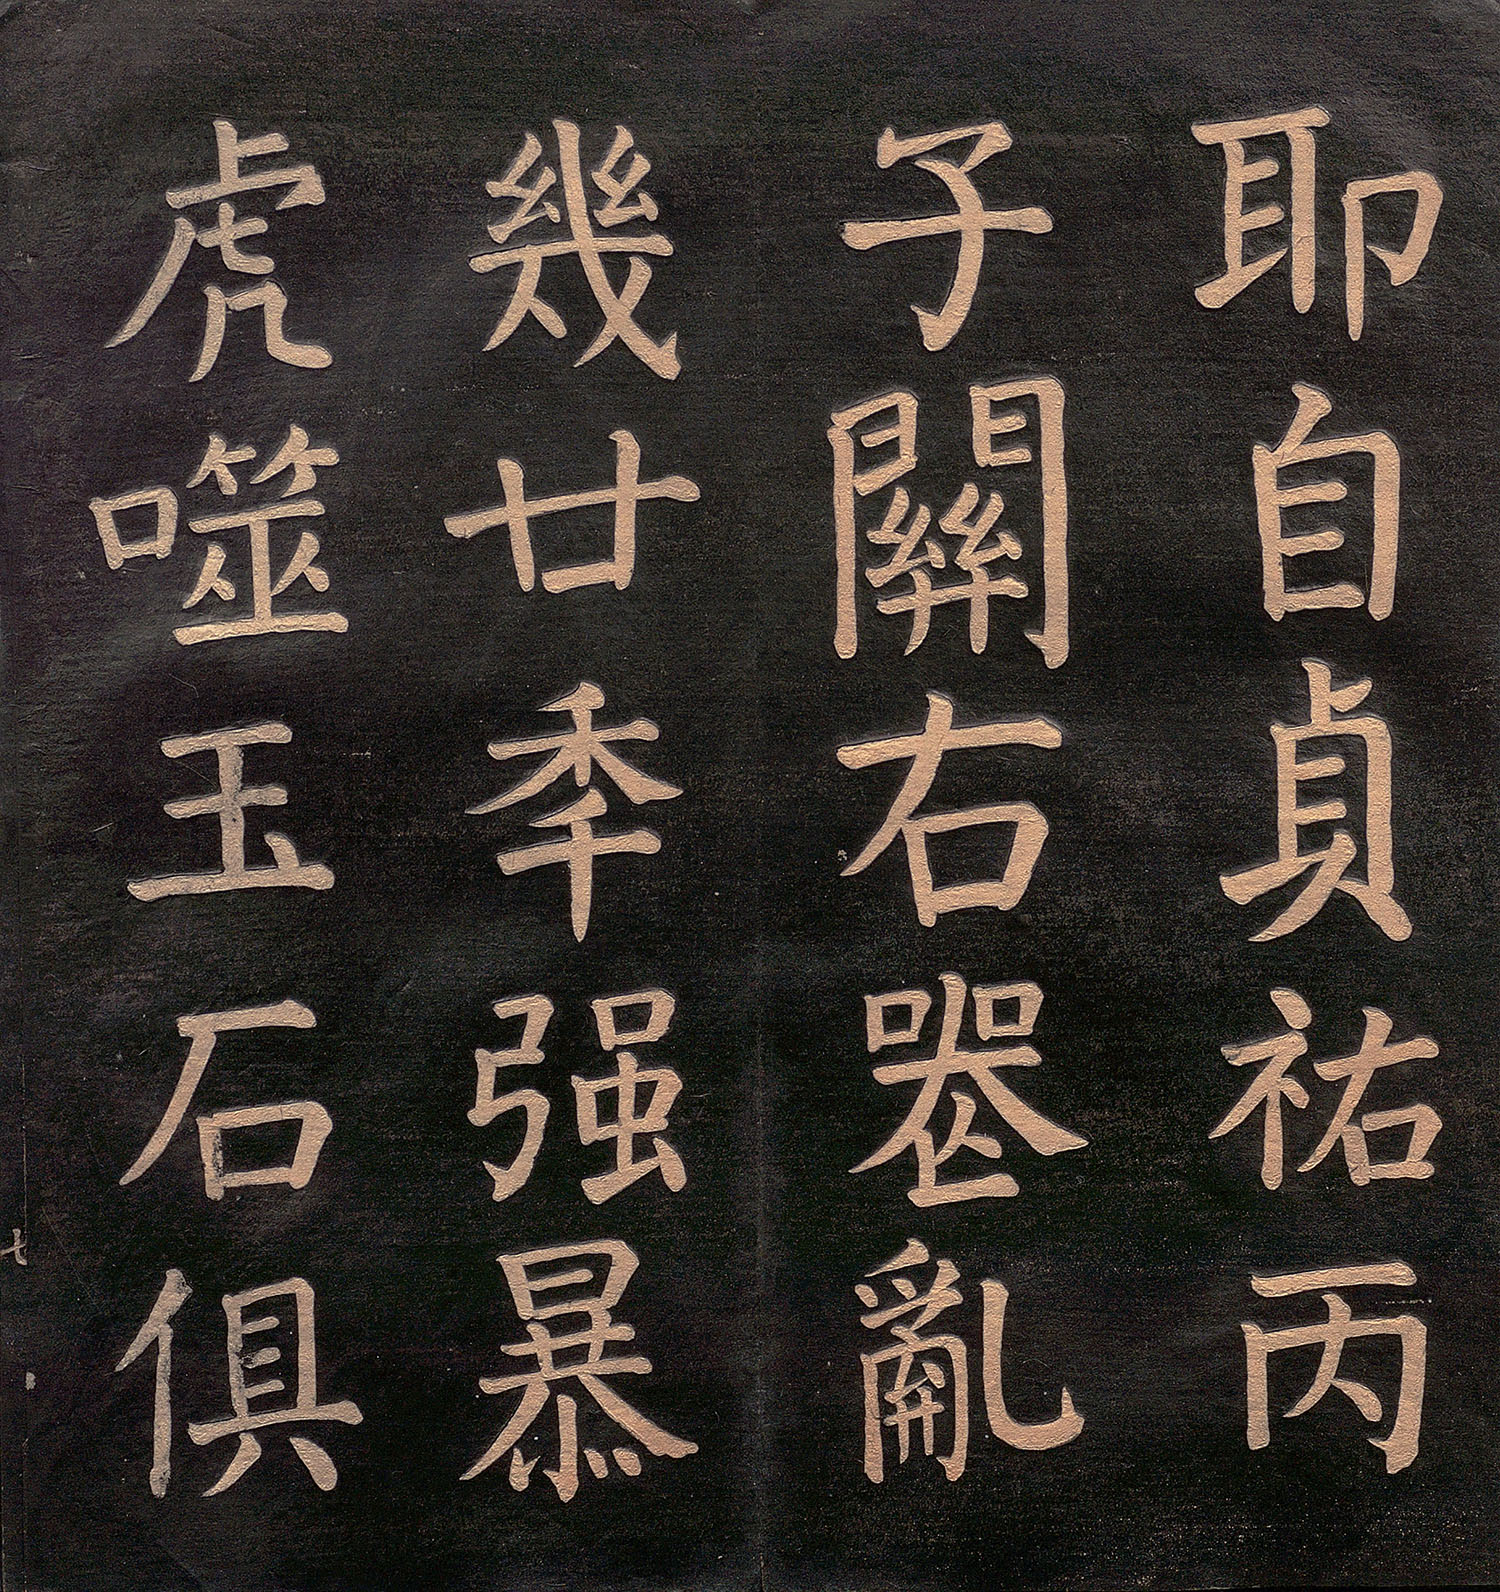 耶自貞祐丙
子關右喪亂
幾廿秊强暴
虎噬玉石俱
七